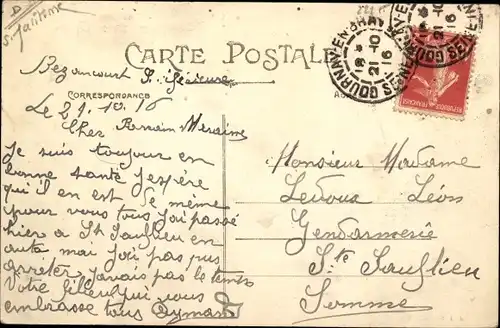 CARTE POSTALE
GOURNAY-EN-BRAY
21-10
16
21-10
16
REPUBLIQUE FRANÇAISE
Bezancourt S. Iférieure
CORRESPONDANCE
Le 21.10.16
Cher Parrain Meraine
Je suis toujour en
bonne santé j'espère
qu'il en est de même
pour vous tous j'ai passé
hier a St Sauflieu en
auto mai j'ai pas pus
arreter j'avais pas le temps
Votre filleul qui vous
embrasse tous Aymard
Monsieur Madame
Ledoux Léon
Gendarmerie
Ste Saufflieu
Somme